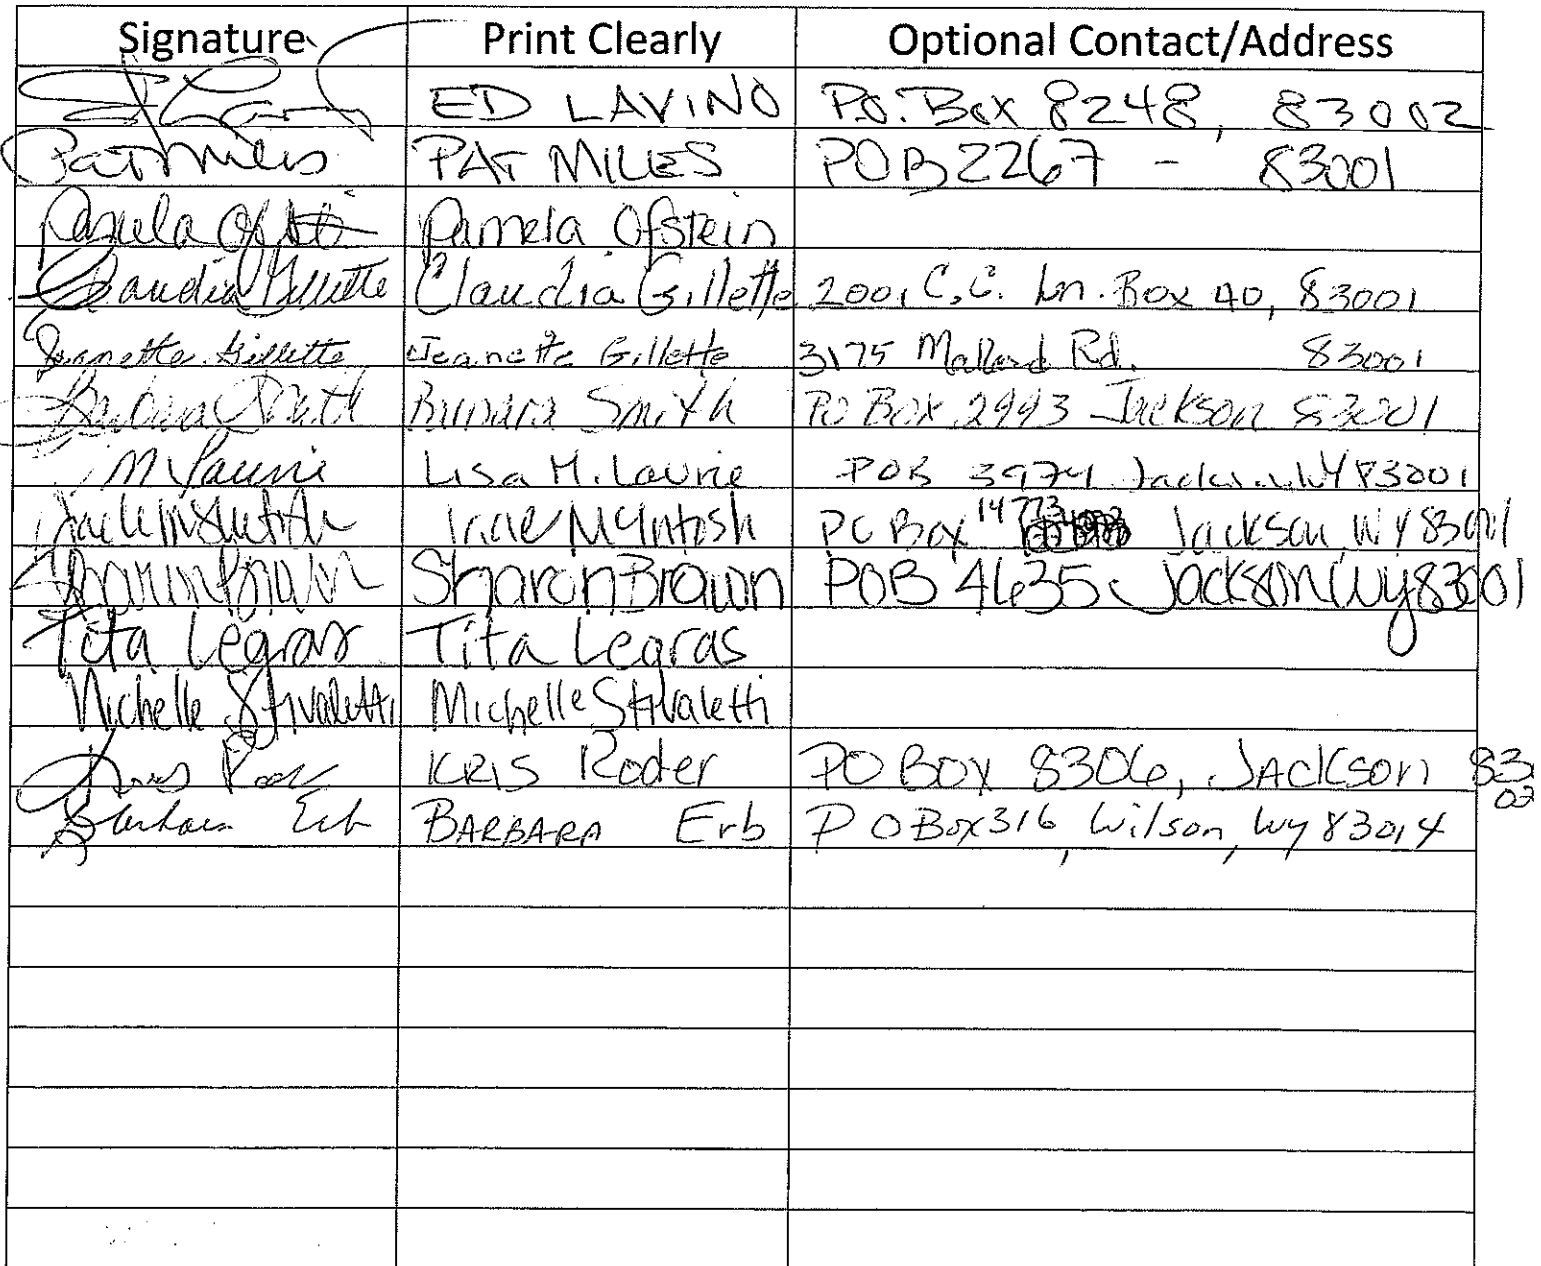 Signature Print Clearly Optional Contact/Address
ED LAVINO P.O. Box 8248, 83002
Pat Miles PAT MILES POB 2267 - 83001
Pamela Ofstein
Claudia Gillette Claudia Gillette 2001 C.C. Ln. Box 40, 83001
Jeanette Gillette Jeanette Gillette 3175 Mallard Rd. 83001
Barbara Smith Barbara Smith PO Box 2993 Jackson 83001
M Laurie Lisa M. Laurie POB 3974 WY 83001
McIntosh PO Box 14773 Jackson, WY 83001
Sharon Brown Sharon Brown POB 4635 Jackson Wy 83001
Tita Legras Tita Legras
Michelle Stivaletti Michelle Stivaletti
KRIS Roder PO BOX 8306, JACKSON 83
02
Barbara Erb BARBARA Erb P O Box 316, Wilson, Wy 83014